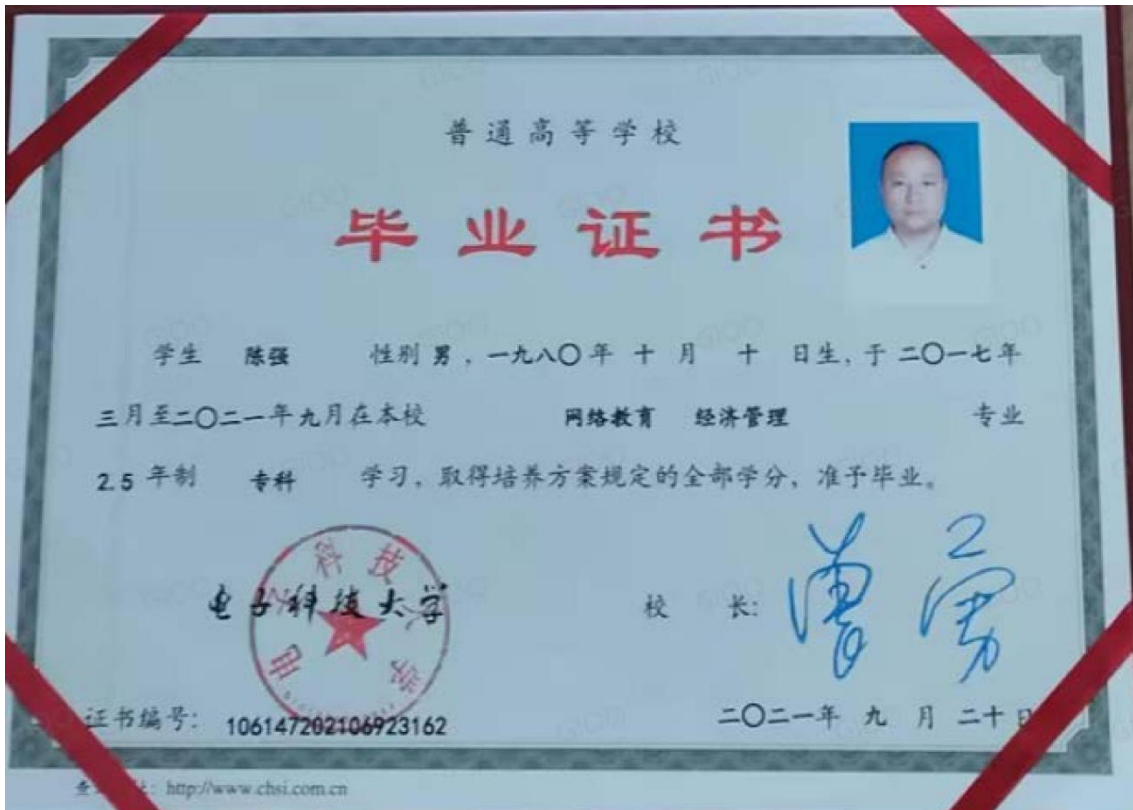 普通高等学校
毕业证书
学生 陈强 性别 男，一九八〇年 十 月 十 日生，于二〇一七年
三月至二〇二一年九月在本校 网络教育 经济管理 专业
2.5 年制 专科 学习，取得培养方案规定的全部学分，准予毕业。
电子科技大学
电子科技大学
校 长：曾勇
证书编号：106147202106923162
二〇二一年 九 月 二十日
http://www.chsi.com.cn